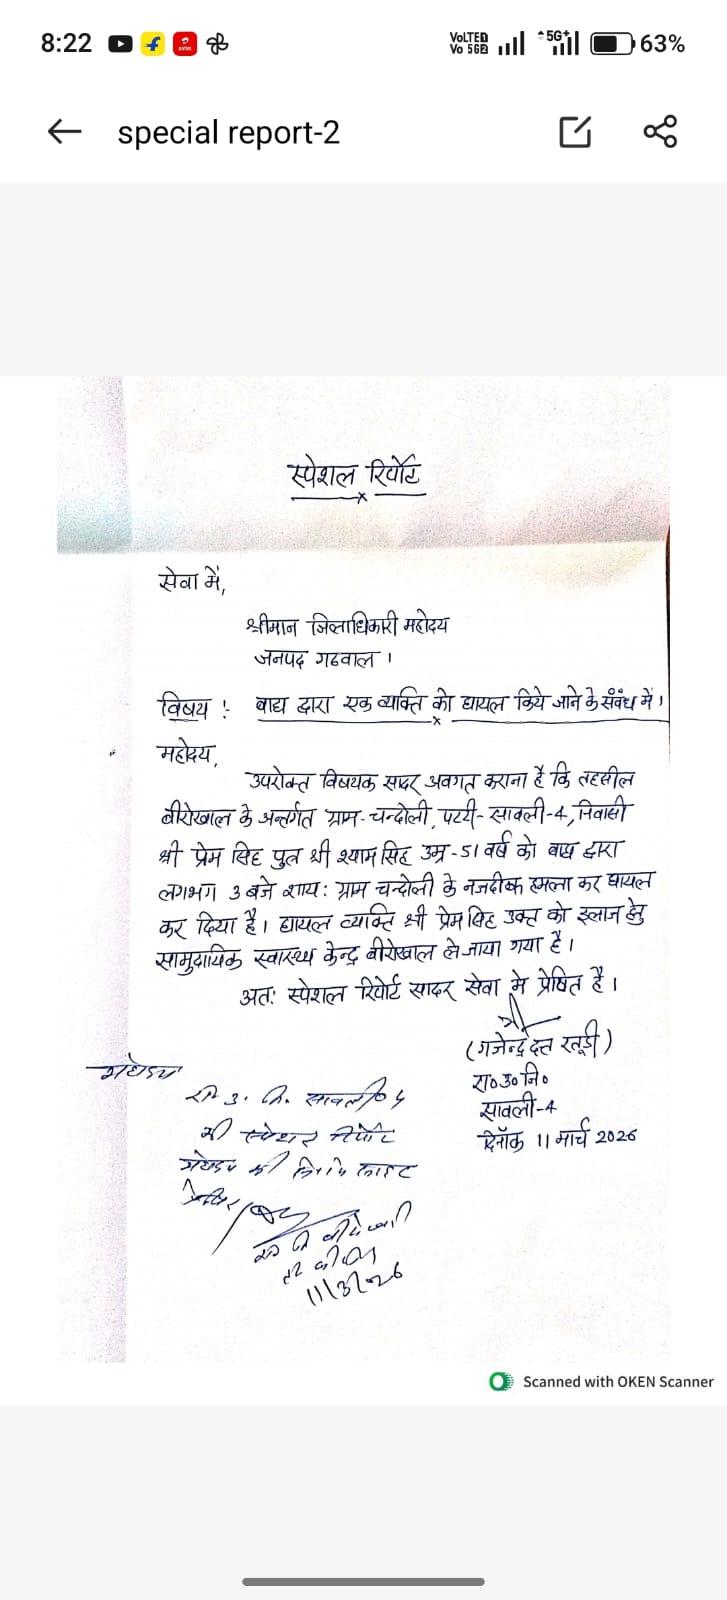 8:22
VoLTED
Vo 5G2
5G+
63%
special report-2
स्पेशल रिर्पोट
सेवा में,
श्रीमान जिलाधिकारी महोदय
जनपद गढवाल।
विषय : बाघ द्वारा एक व्यक्ति को घायल किये जाने के संबंध में।
महोदय,
उपरोक्त विषयक सादर अवगत कराना है कि तहसील
बीरोंखाल के अन्तर्गत ग्राम-चन्दोली, पटटी-सावली-4, निवासी
श्री प्रेम सिंह पुत्र श्री श्याम सिंह उम्र-51 वर्ष को बाघ द्वारा
लगभग 3 बजे शाय: ग्राम चन्दोली के नजदीक हमला कर घायल
कर दिया है। घायल व्यक्ति श्री प्रेम सिंह उक्त को इलाज हेतु
सामुदायिक स्वास्थ्य केन्द्र बीरोंखाल ले जाया गया है।
अत: स्पेशल रिर्पोट सादर सेवा मे प्रेषित है।
(गजेन्द्र दत्त रतूड़ी)
रा०उ०नि०
सावली-4
दिनाँक 11 मार्च 2026
महोदय
रा. उ. नि. सावली 4
की स्पेशल रिपोर्ट
महोदय की
11/3/26
Scanned with OKEN Scanner